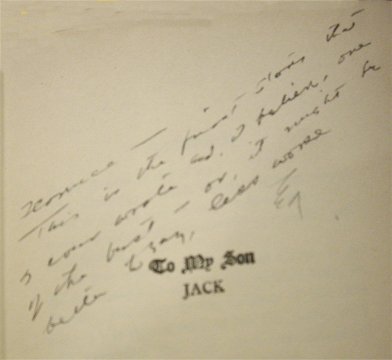 This is the first story that
I ever wrote and, I believe, one
of the best — or, it might be
better to say, less worse
Ed
To My Son
JACK